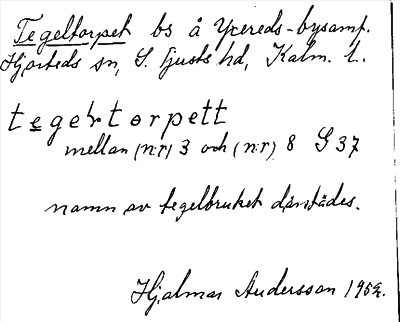 Tegeltorpet bs å Yxereds-bysamf.
Hjorteds sn, S. Tjusts hd, Kalm. l.
tegeltorpett
mellan (nr) 3 och (nr) 8 S 37
namn av tegelbruket därstädes.
Hjalmar Andersson 1952.